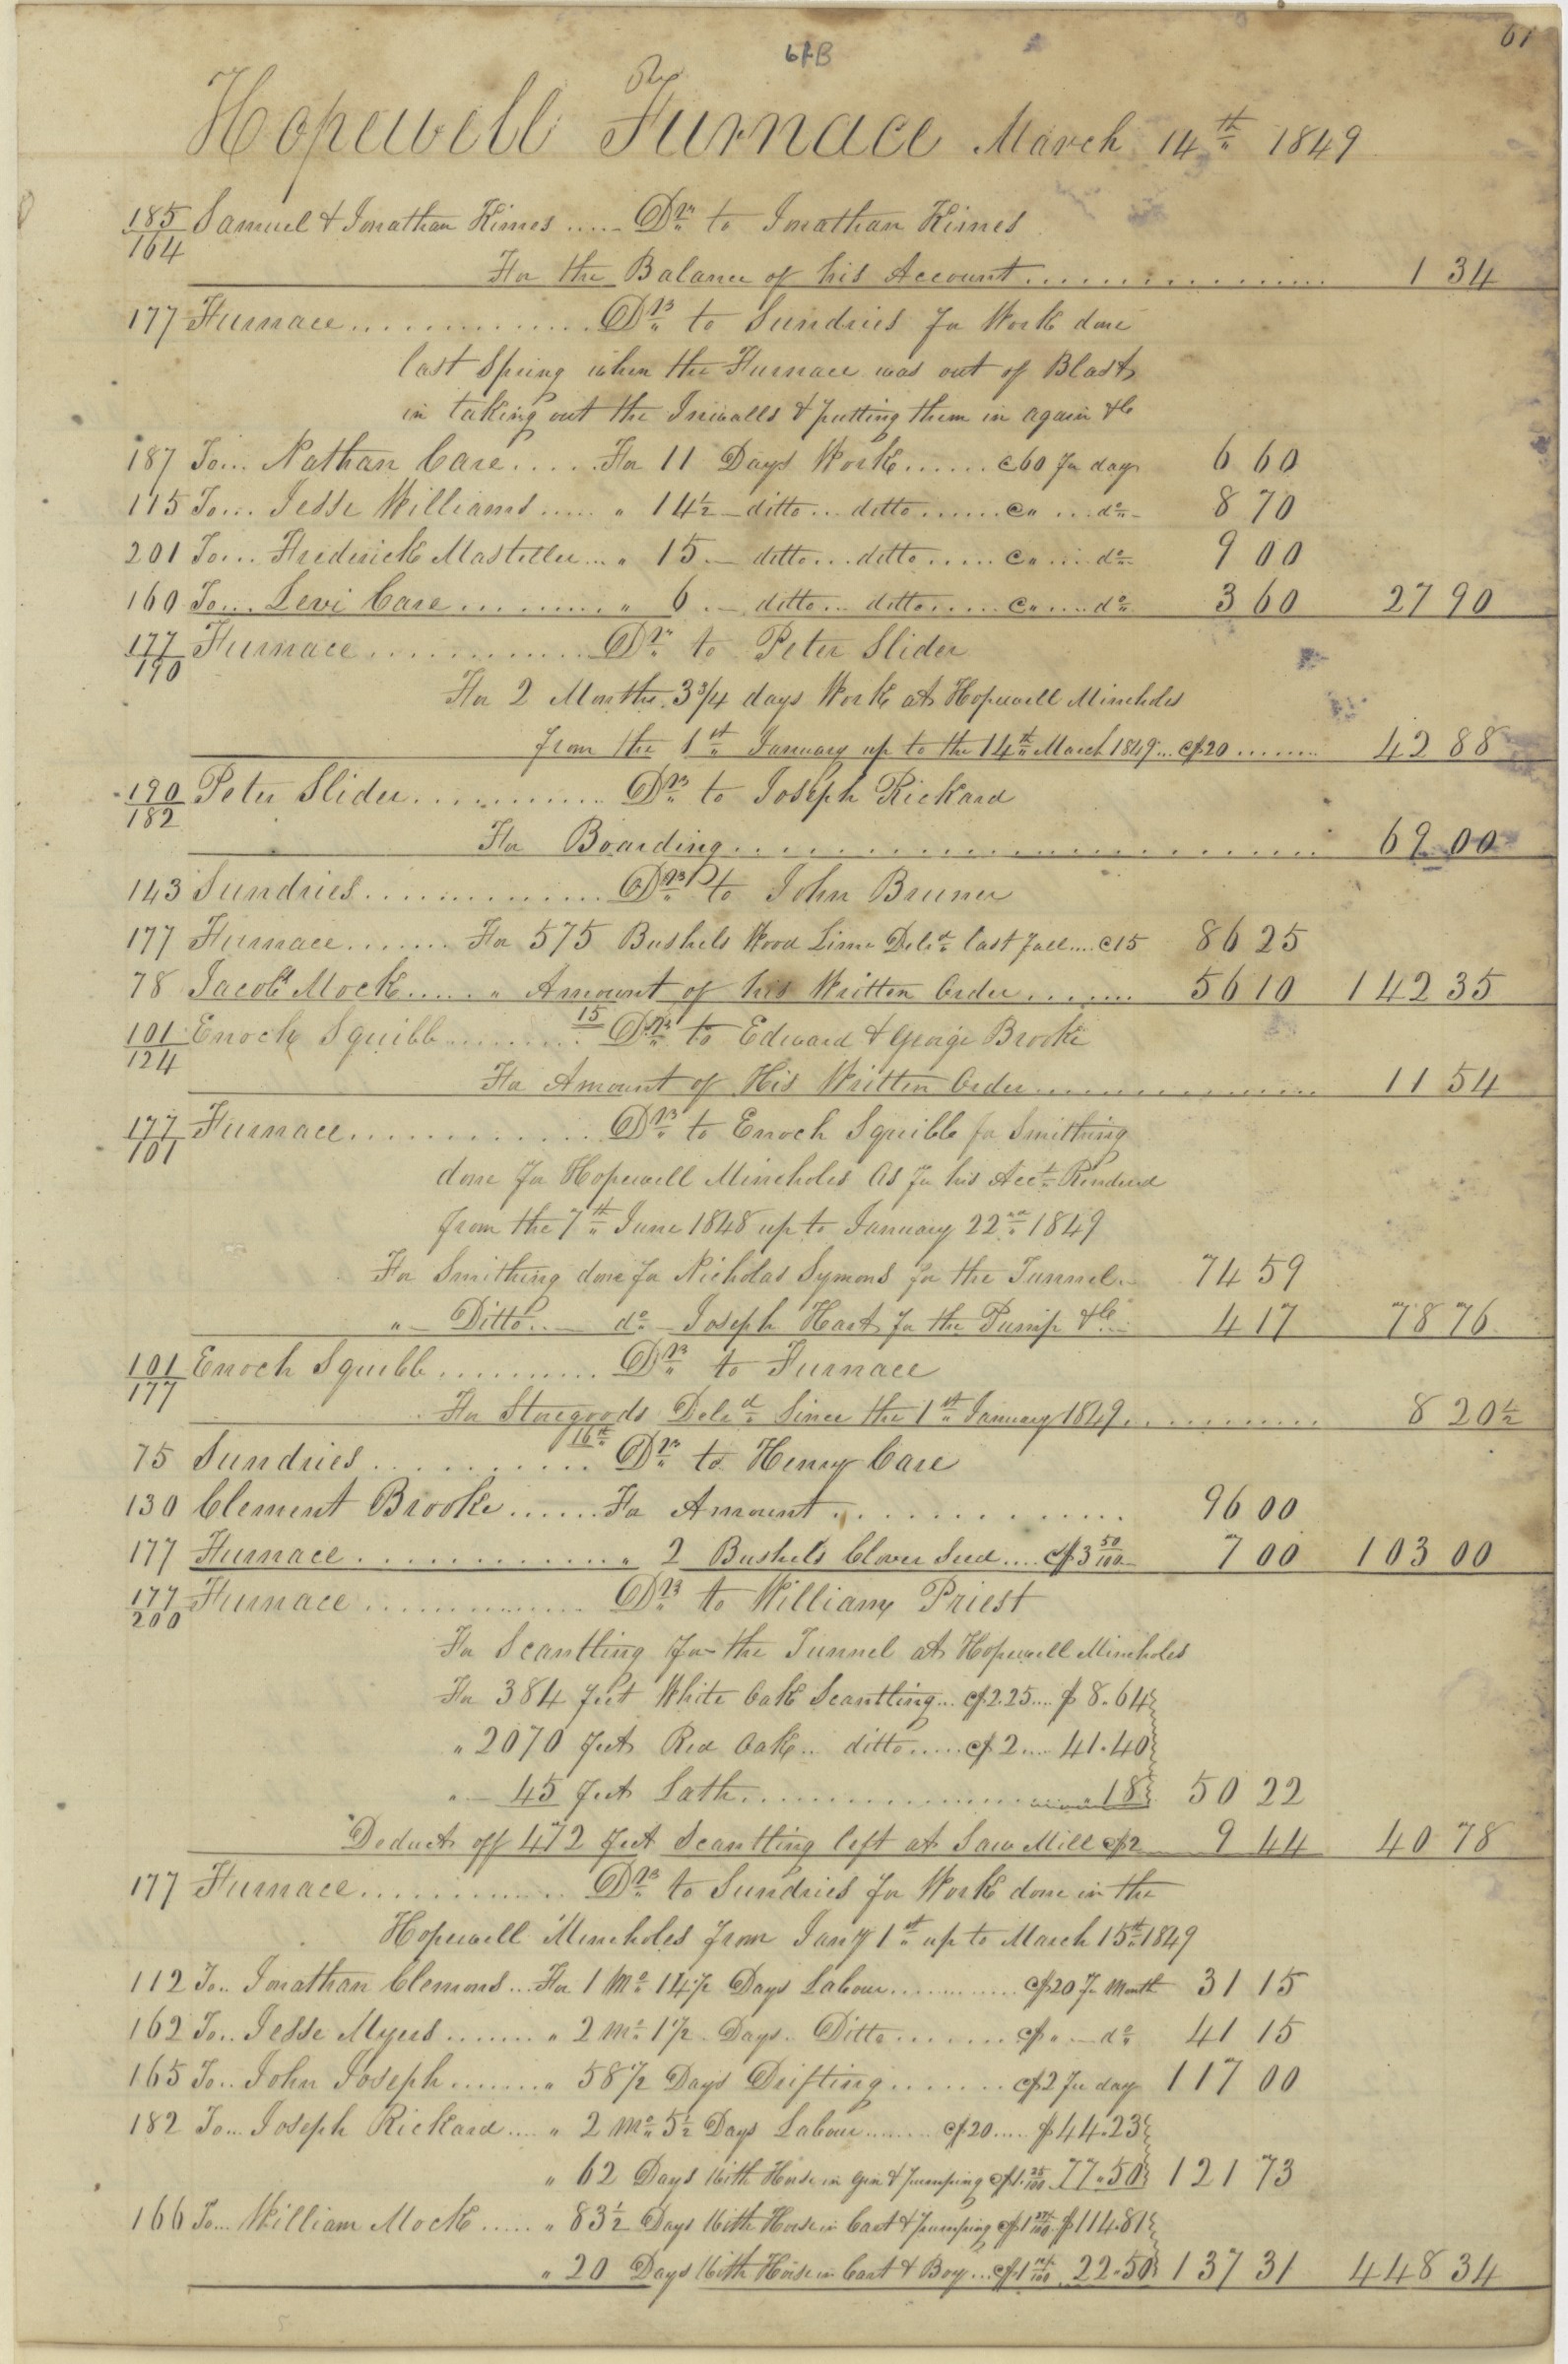 61B
61
Hopewell Furnace March 14th 1849
185 Samuel & Jonathan Kimes ..... Dr. to Jonathan Kimes
164
For the Balance of his Account .............. 1 34
177 Furnace .............. Drs to Sundries for Work done
last Spring when the Furnace was out of Blast
in taking out the Inwalls & putting them in again &c
187 To... Nathan Care ..... For 11 Days Work ...... c60 per day 6 60
115 To... Jesse Williams ..... " 14½ ditto ... ditto ...... c" ... do 8 70
201 To... Frederick Masteller ... " 15 ditto ... ditto ...... c" ... do 9 00
160 To... Levi Care ......... " 6 ditto ... ditto ...... c" ... do 3 60 27 90
177 Furnace .............. Dr. to Peter Slider
190
For 2 Months 3¾ days Work at Hopewell Mineholes
from the 1st January up to the 14th March 1849 ... @$20 ........ 42 88
190 Peter Slider ............ Drs to Joseph Rickard
182
For Boarding ........................ 69 00
143 Sundries .............. Drs to John Bruner
177 Furnace ....... For 575 Bushels Wood Lime Deld last fall .... c15 86 25
78 Jacob Mock ...... " Amount of his Written Order ....... 56 10 142 35
15
101 Enoch Squibb ......... Drs to Edward & George Brooke
124
For Amount of His Written Order .............. 11 54
177 Furnace ............ Drs to Enoch Squibb for Smithing
101
done for Hopewell Mineholes As per his Acct Rendered
from the 7th June 1848 up to January 22nd 1849
For Smithing done for Nicholas Symons for the Tunnel 74 59
" Ditto ... do Joseph Hart for the Pump &c 4 17 78 76
101 Enoch Squibb .......... Drs to Furnace
177
For Storegoods Deld Since the 1st January 1849 ............ 8 20½
16th
75 Sundries ........... Drs to Henry Care
130 Clement Brooke ...... For Amount .............. 96 00
177 Furnace .............. " 2 Bushels Clover Seed .... @$3 50/100 7 00 103 00
177 Furnace .............. Drs to William Priest
200
For Scantling for the Tunnel at Hopewell Mineholes
For 384 feet White Oak Scantling ... @$2.25 .... $ 8.64
" 2070 feet Red Oak .. ditto ..... @$2 .... 41.40
" 45 feet Lath .................. .18 50 22
Deduct off 472 feet Scantling left at Saw Mill @$2 9 44 40 78
177 Furnace ............. Drs to Sundries for Work done in the
Hopewell Mineholes from Jany 1st up to March 15th 1849
112 To.. Jonathan Clemons ... For 1 Mo 14½ Days Labour ............ @$20 per Month 31 15
162 To.. Jesse Myers ........ " 2 Mo 1½ Days Ditto ........ @$ " do 41 15
165 To.. John Joseph ........ " 58½ Days Drifting ........ @$2 per day 117 00
182 To... Joseph Rickard .... " 2 Mo 5½ Days Labour ........ @$20 ..... $44.23
" 62 Days With Horse in Gin & pumping @$1.25/100 77.50 121 73
166 To... William Mock ...... " 83½ Days With Horse in Cart & pumping @$1 $114.81
" 20 Days With Horse in Cart & Boy ... @$1 22.50 137 31 448 34